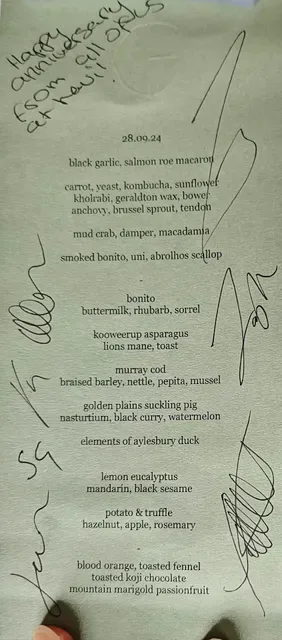 Happy
anniversary
From all of us
at navi!
28.09.24
black garlic, salmon roe macaron
carrot, yeast, kombucha, sunflower
kholrabi, geraldton wax, bower
anchovy, brussel sprout, tendon
mud crab, damper, macadamia
smoked bonito, uni, abrolhos scallop
-
bonito
buttermilk, rhubarb, sorrel
kooweerup asparagus
lions mane, toast
murray cod
braised barley, nettle, pepita, mussel
golden plains suckling pig
nasturtium, black curry, watermelon
elements of aylesbury duck
-
lemon eucalyptus
mandarin, black sesame
potato & truffle
hazelnut, apple, rosemary
-
blood orange, toasted fennel
toasted koji chocolate
mountain marigold passionfruit